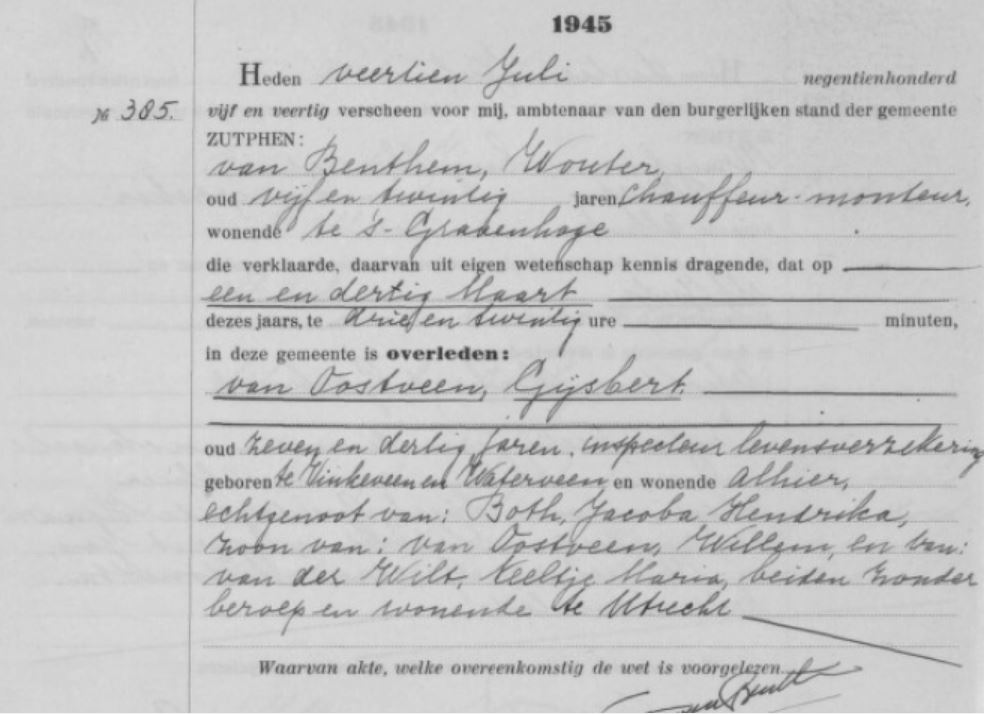 1945
Heden veertien Juli negentienhonderd
№ 385. vijf en veertig verscheen voor mij, ambtenaar van den burgerlijken stand der gemeente
ZUTPHEN:
van Benthem, Wouter,
oud vijf en twintig jaren, chauffeur-monteur,
wonende te 's-Gravenhage
die verklaarde, daarvan uit eigen wetenschap kennis dragende, dat op
een en dertig Maart
dezes jaars, te drie en twintig ure minuten,
in deze gemeente is overleden:
van Oostveen, Gijsbert.
oud zeven en dertig jaren, inspecteur levensverzekering
geboren te Vinkeveen en Waterveen, en wonende alhier,
echtgenoot van: Both, Jacoba Hendrika,
zoon van: van Oostveen, Willem, en van:
van der Wilt, Neeltje Maria, beiden zonder
beroep en wonende te Utrecht
Waarvan akte, welke overeenkomstig de wet is voorgelezen.